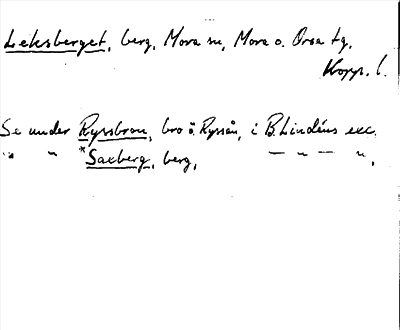 Leksberget, berg, Mora sn, Mora o. Orsa tg,
Kopp. l.
Se under Ryssbron, bro ö. Ryssån, i B. Lindéns exc.
" " *Saxberg, berg, — " — ",